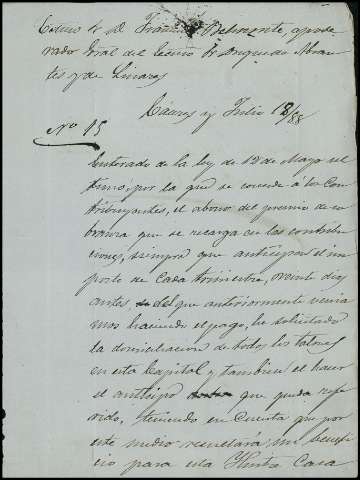 Excmo Sr D. Franco Belmonte, apode
rado Gral del Excmo Sr Duque de Abran
tes y de Linares
Cáceres y Julio 18/88
No 15
Enterado de la ley de 12 de Mayo ul
timo, por la que se concede á los Con
tribuyentes, el abono del premio de co
branza que se recarga en las contribu
ciones, siempre que anticipen el im
porte de Cada trimestre, veinte dias
antes, del que anteriormente venia
mos haciendo el pago, he solicitado
la domiciliacion de todos los talones
en esta Capital y tambien el hacer
el anticipo que queda refe
rido, teniendo en Cuenta que por
este medio resultará un benefi
cio para esa Iltma Casa